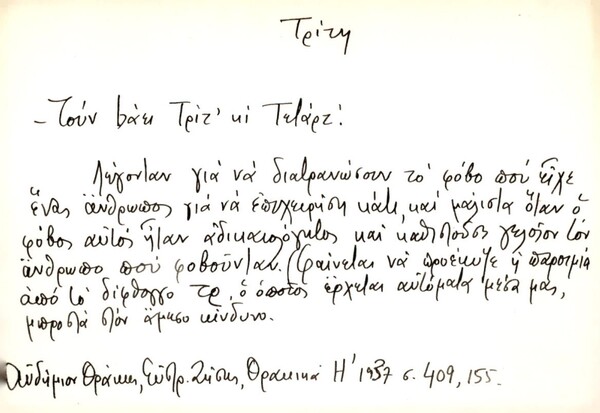 Τρίτη
- Τούν bάει Τρίτ' κι Τετάρτ'!
Λέγονταν γιὰ νὰ διατρανώσουν τὸ φόβο ποὺ εἶχε
ἕνας ἄνθρωπος γιὰ νὰ ἐπιχειρήση κάτι, καὶ μάλιστα ὅταν ὁ
φόβος αὐτὸς ἦταν ἀδικαιολόγητος καὶ καθιστοῦσε γελοῖον τὸν
ἄνθρωπο ποὺ φοβοῦνταν. (Φαίνεται νὰ προέκυψε ἡ παροιμία
ἀπὸ τὸ δίφθογγο τρ, ὁ ὁποῖος ἔρχεται αὐτόματα μέσα μας,
μπροστὰ στὸν ἄμεσο κίνδυνο.
Θράκης, Εὐστρ. Ζήσης, Θρακικὰ Η' 1937 σ. 409, 155.